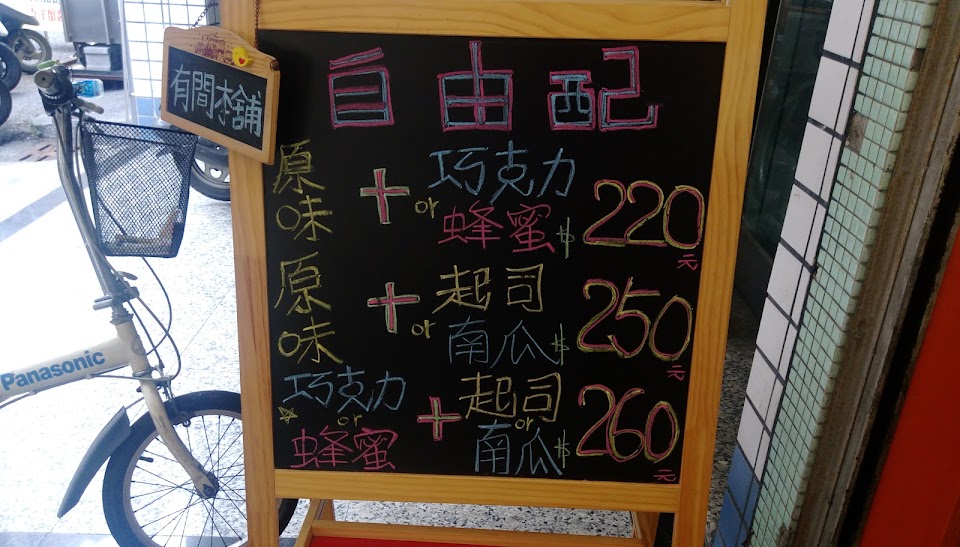 自由配
有間本舖
原味 + 巧克力 or 蜂蜜 $220元
原味 + 起司 or 南瓜 $250元
巧克力 or 蜂蜜 + 起司 or 南瓜 $260元
Panasonic